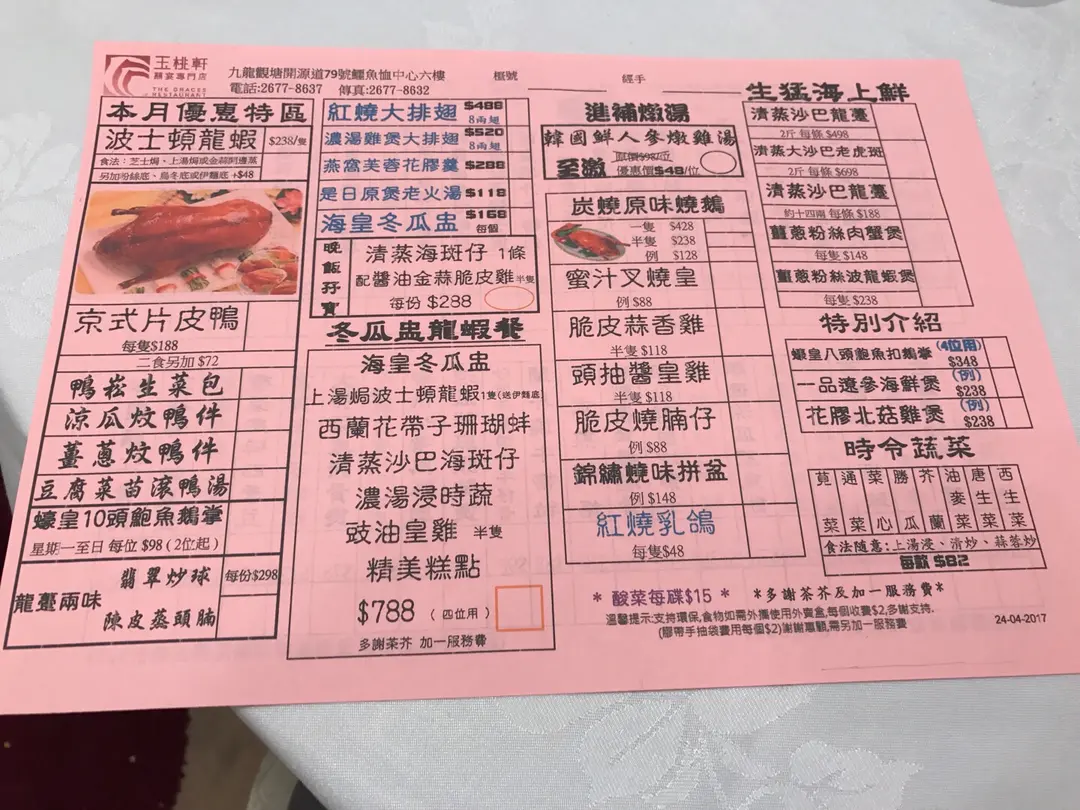 玉桃軒
囍宴專門店
THE GRACES
RESTAURANT
九龍觀塘開源道79號鱷魚恤中心六樓
電話:2677-8637 傳真:2677-8632
枱號
經手
本月優惠特區
波士頓龍蝦 $238/隻
食法：芝士焗、上湯焗或金蒜阿邊蒸
另加粉絲底、烏冬底或伊麵底 +$48
京式片皮鴨
每隻$188
二食另加 $72
鴨崧生菜包
涼瓜炆鴨件
薑蔥炆鴨件
豆腐菜苗滾鴨湯
蠔皇10頭鮑魚鵝掌
星期一至日 每位 $98 ( 2位起 )
龍躉兩味
翡翠炒球
陳皮蒸頭腩
每份$298
紅燒大排翅 $488
8兩翅
濃湯雞煲大排翅 $520
8兩翅
燕窩芙蓉花膠羹 $288
是日原煲老火湯 $118
海皇冬瓜盅 $168
每個
晚飯孖寶
清蒸海斑仔 1條
配醬油金蒜脆皮雞半隻
每份 $288
冬瓜盅龍蝦餐
海皇冬瓜盅
上湯焗波士頓龍蝦1隻(送伊麵底
西蘭花帶子珊瑚蚌
清蒸沙巴海斑仔
濃湯浸時蔬
豉油皇雞 半隻
精美糕點
$788 ( 四位用 )
多謝茶芥 加一服務費
進補燉湯
韓國鮮人參燉雞湯
至激
原價$98/位
優惠價$48/位
炭燒原味燒鵝
一隻 $428
半隻 $238
例 $128
蜜汁叉燒皇
例 $88
脆皮蒜香雞
半隻 $118
頭抽醬皇雞
半隻 $118
脆皮燒腩仔
例 $88
錦繡燒味拼盆
例 $148
紅燒乳鴿
每隻$48
生猛海上鮮
清蒸沙巴龍躉
2斤 每條 $498
清蒸大沙巴老虎斑
2斤 每條 $698
清蒸沙巴龍躉
約十四兩 每條 $188
薑蔥粉絲肉蟹煲
每隻 $148
薑蔥粉絲波龍蝦煲
每隻 $238
特別介紹
蠔皇八頭鮑魚扣鵝掌 (4位用)
$348
一品遼參海鮮煲 (例)
$238
花膠北菇雞煲 (例)
$238
時令蔬菜
莧菜 通菜 菜心 勝瓜 芥蘭 油麥菜 唐生菜 西生菜
食法隨意:上湯浸、清炒、蒜蓉炒
每款 $82
* 酸菜每碟$15 * *多謝茶芥及加一服務費*
溫馨提示:支持環保,食物如需外攜使用外賣盒,每個收費$2,多謝支持.
(膠帶手抽袋費用每個$2)謝謝惠顧,需另加一服務費
24-04-2017